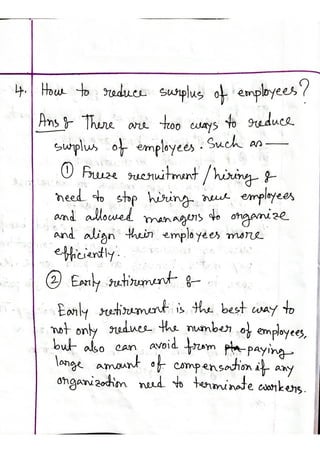 4. How to reduce surplus of employees?
Ans :- There are too ways to reduce
surplus of employees. Such as —
① Freeze recruitment / hiring :-
need to stop hiring new employees
and allowed managers to organize
and align their employees more
efficiently.
② Early retirement :-
Early retirement is the best way to
not only reduce the number of employees,
but also can avoid from paying
large amount of compensation if any
organization need to terminate workers.